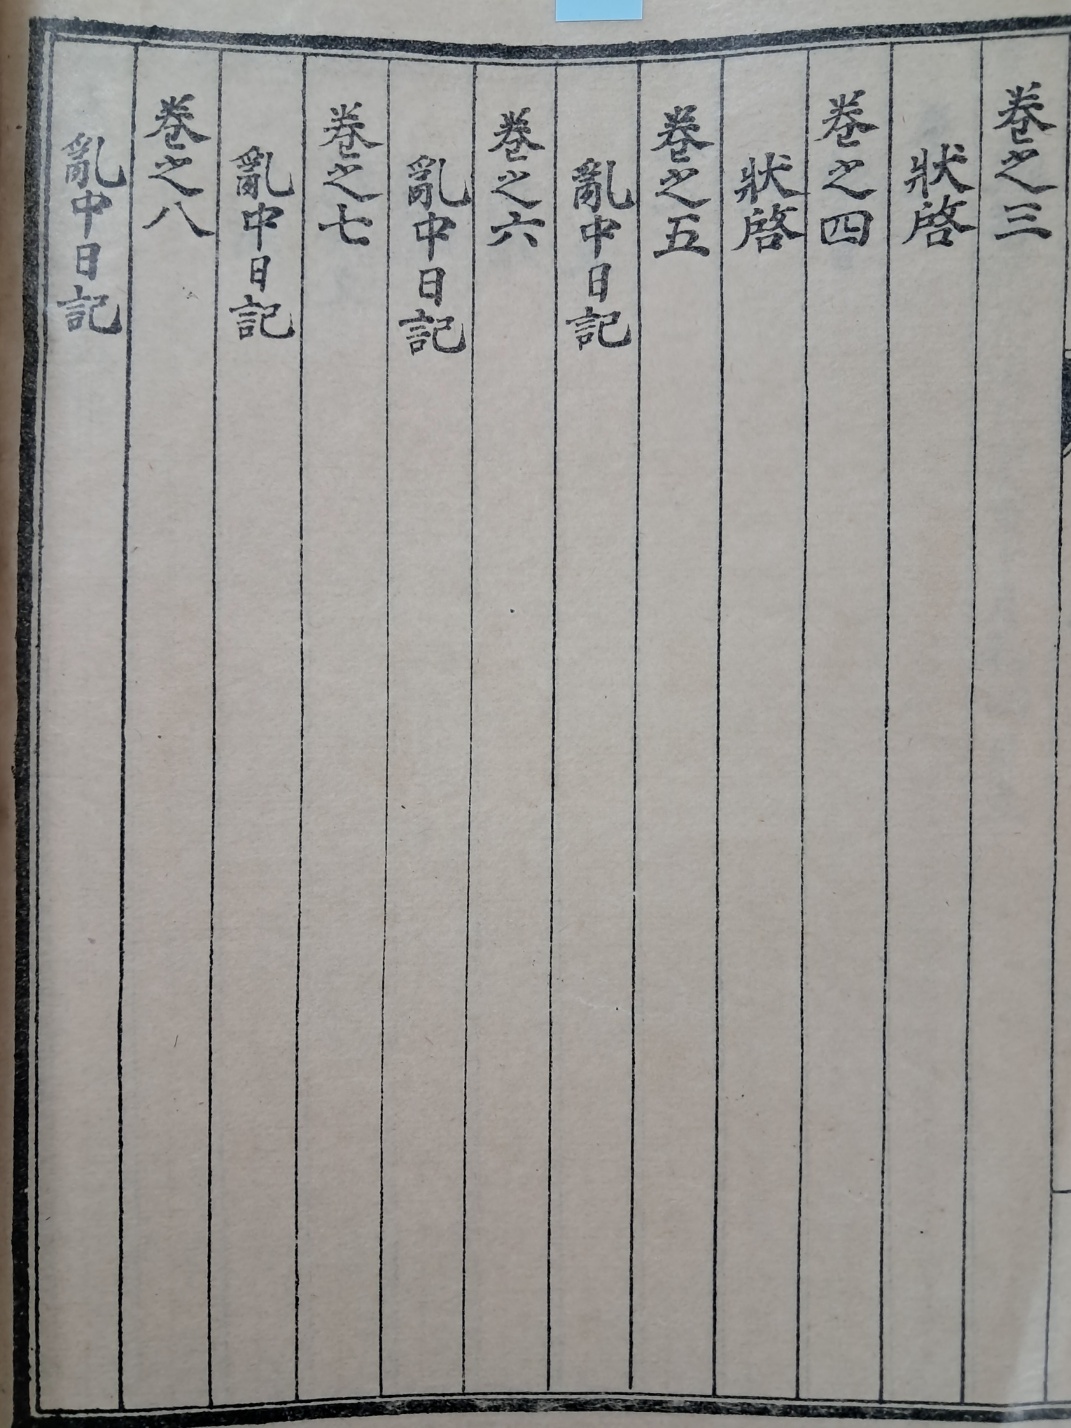 卷之三
狀啓
卷之四
狀啓
卷之五
亂中日記
卷之六
亂中日記
卷之七
亂中日記
卷之八
亂中日記